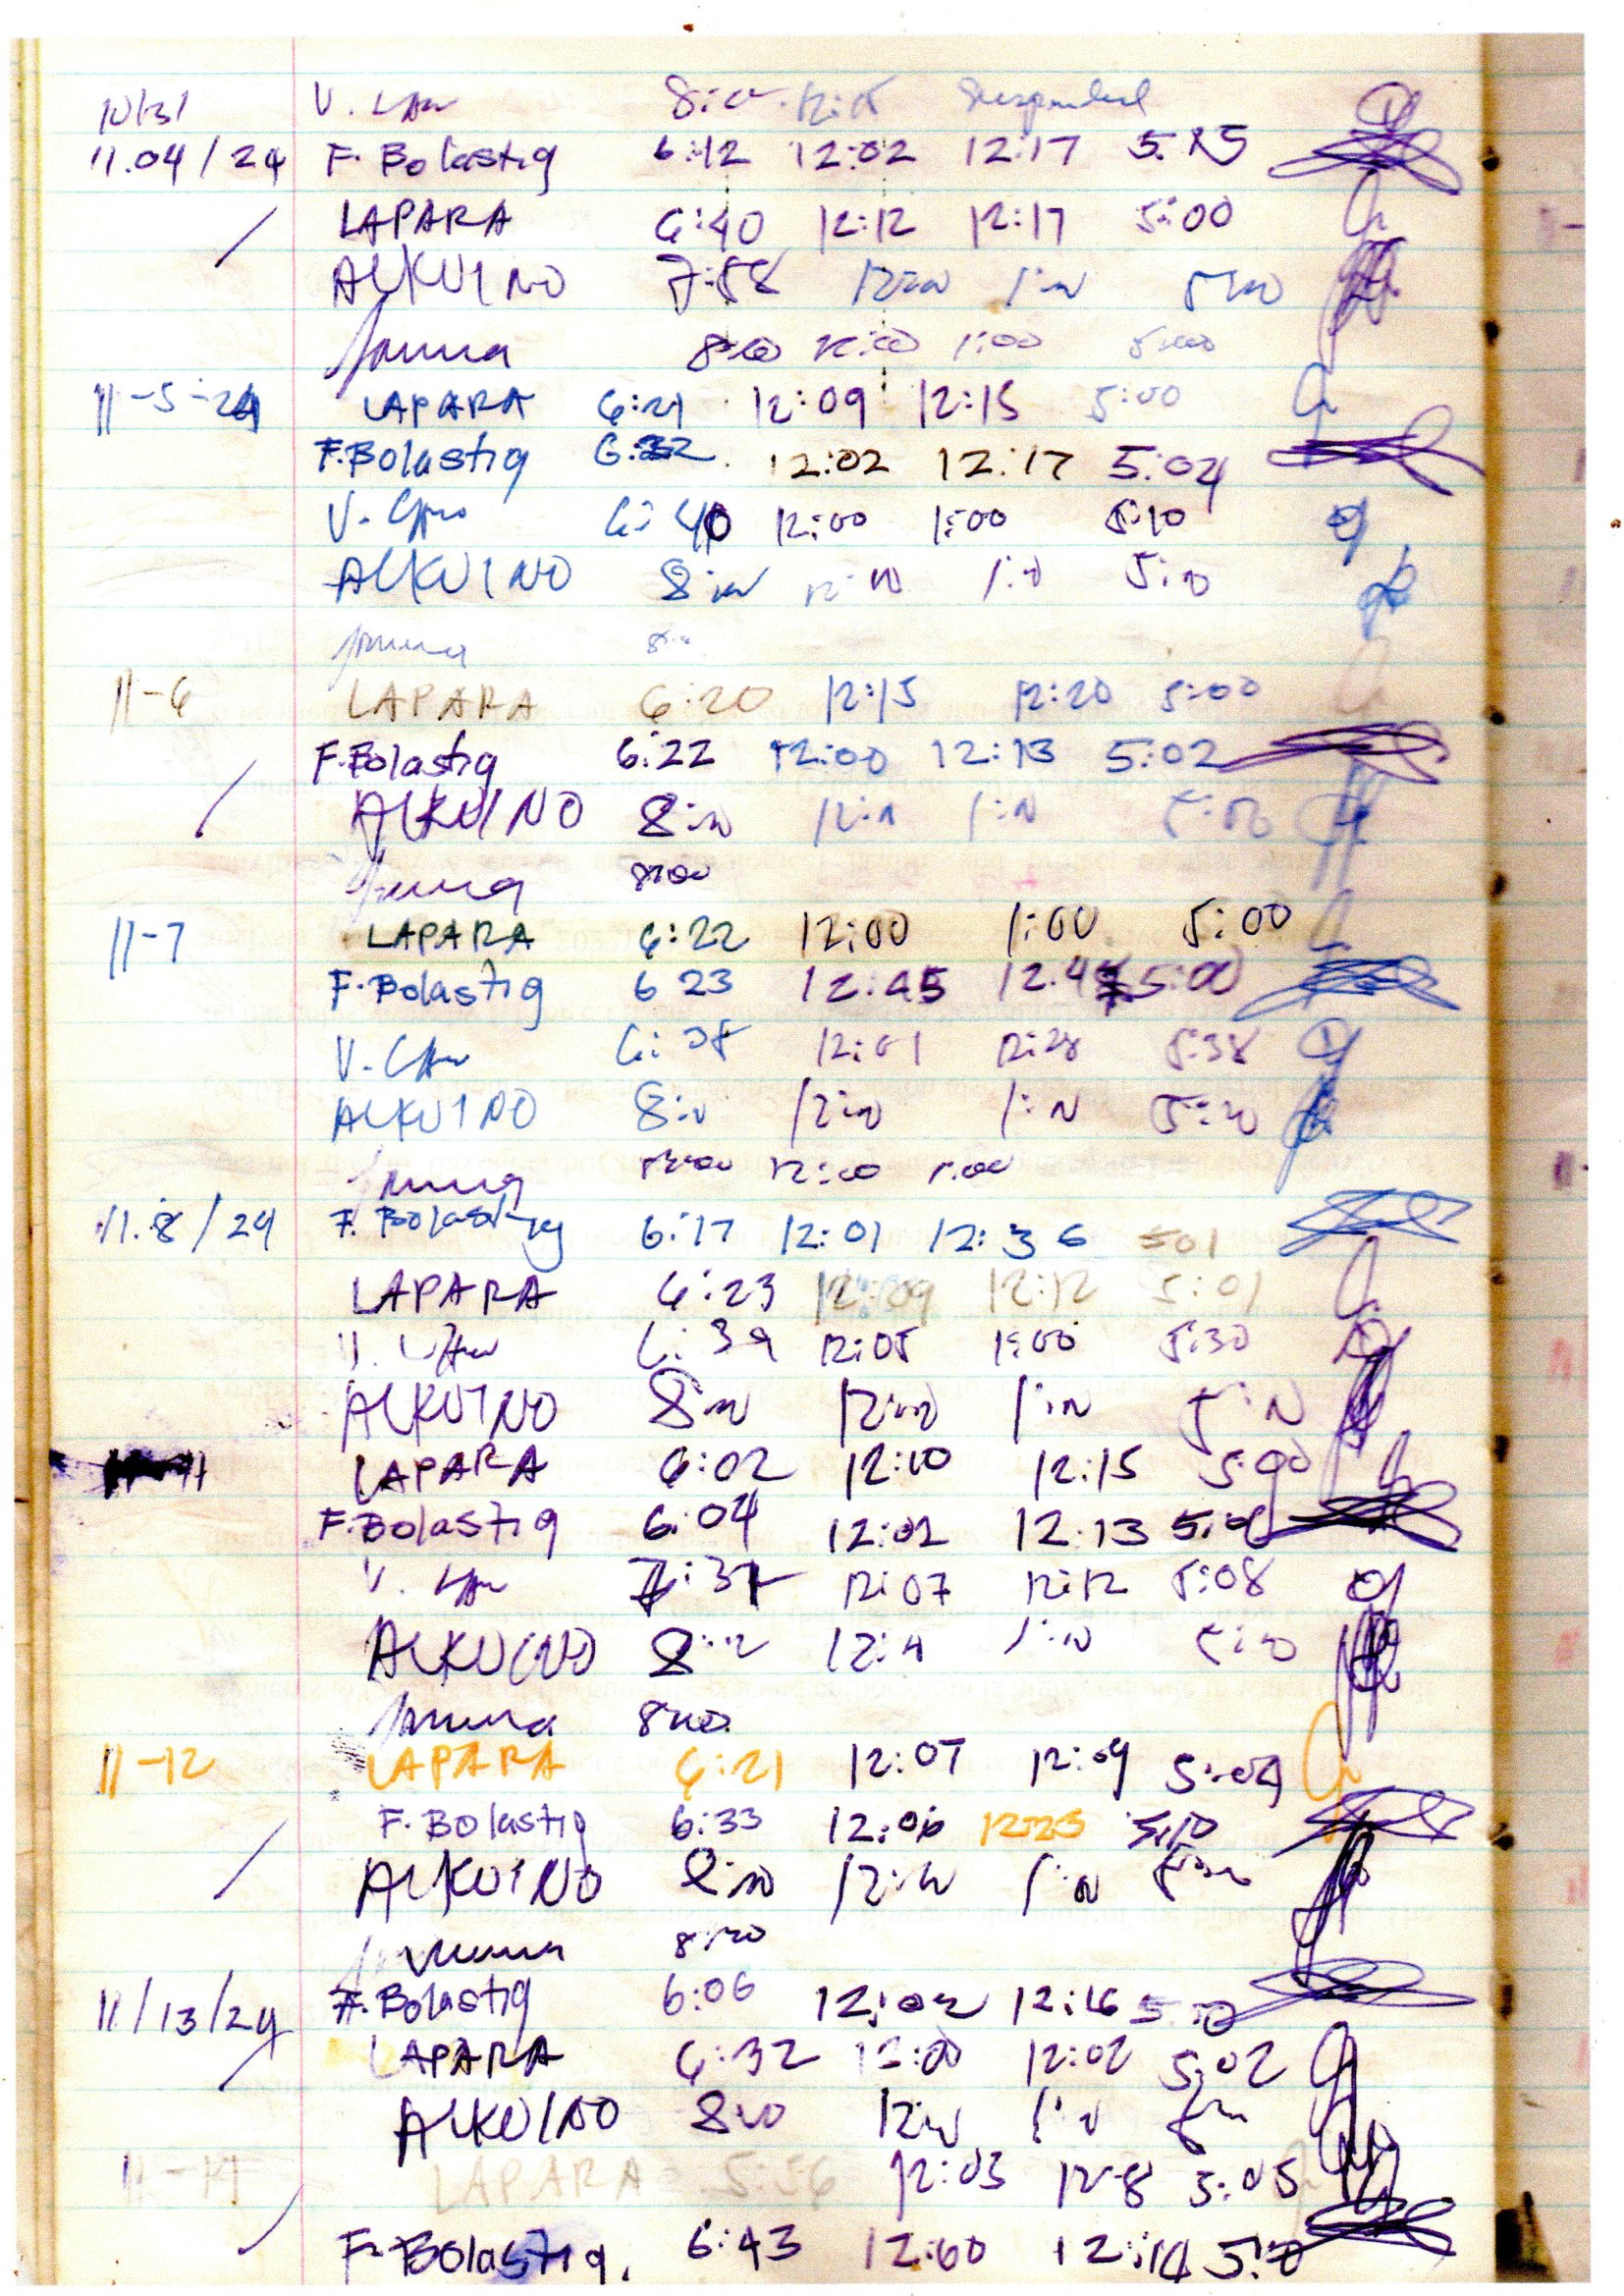 10/31 V. 8:00 12:05 Suspended
11.04/24 F. Bolastig 6:42 12:02 12:17 5:15
/ LAPARA 6:40 12:12 12:17 5:00
ALKUINO 7:58 12:00 1:00 5:00
8:00 12:00 1:00 5:00
11-5-24 LAPARA 6:21 12:09 12:15 5:00
F.Bolastig 6:32 12:02 12:17 5:04
V. 6:40 12:00 1:00 5:10
ALKUINO 8:00 12:00 1:00 5:00
11-6 LAPARA 6:20 12:15 12:20 5:00
F.Bolastig 6:22 12:00 12:13 5:02
/ ALKUINO 8:00 12:00 1:00
8:00
11-7 LAPARA 6:22 12:00 1:00 5:00
F.Bolastig 6 23 12:45 5:00
V. 6:38 12:01 12:28 5:38
ALKUINO 8:00 12:00 1:00 5:00
8:00 12:00 1:00
11.8/24 F. Bolastig 6:17 12:01 12:36 501
LAPARA 6:23 12:09 12:12 5:01
V. 6:39 12:05 1:00 5:30
ALKUINO 8:00 12:00 1:00 5:00
LAPARA 6:02 12:10 12:15 5:00
F.Bolastig 6:04 12:02 12:13
V. 12:07 12:12 5:08
ALKUINO 8:00 12:00 1:00 5:00
8:00
11-12 LAPARA 6:21 12:07 12:09 5:04
F. Bolastig 6:33 12:06 12:25 5:10
/ ALKUINO 8:00 12:00 1:00 5:00
8:00
11/13/24 F. Bolastig 6:06 12:02 12:16
/ LAPARA 6:32 12:00 12:02 5:02
ALKUINO 8:00 12:00 1:00
11-14 LAPARA 5:56 12:03 12:8 5:05
/ F. Bolastig. 6:43 12:00 12:14